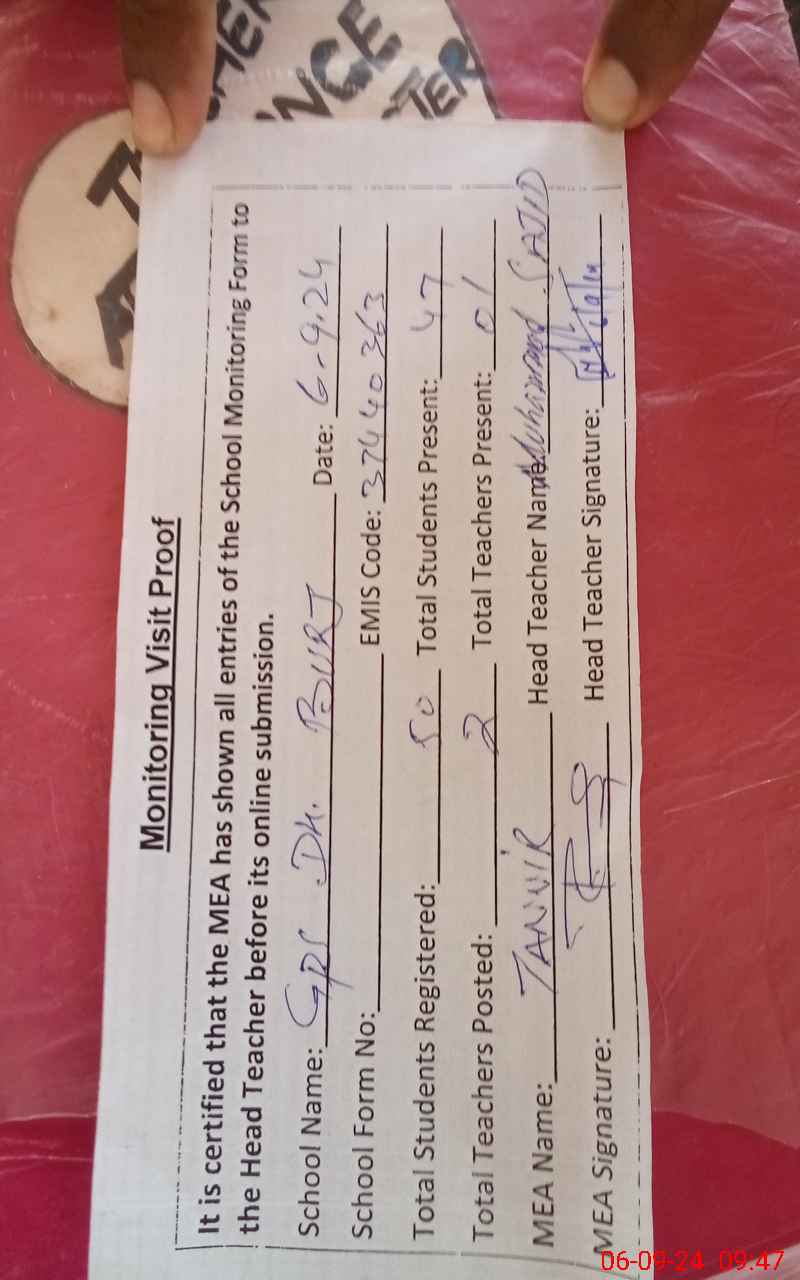 Monitoring Visit Proof
It is certified that the MEA has shown all entries of the School Monitoring Form to
the Head Teacher before its online submission.
School Name: GPS DH. BURJ Date: 6-9.24
School Form No: EMIS Code: 37440363
Total Students Registered: 50 Total Students Present: 47
Total Teachers Posted: 2 Total Teachers Present: 01
MEA Name: TANVIR Head Teacher Name: Muhammad SAJID
MEA Signature: Head Teacher Signature:
06-09-24 09:47